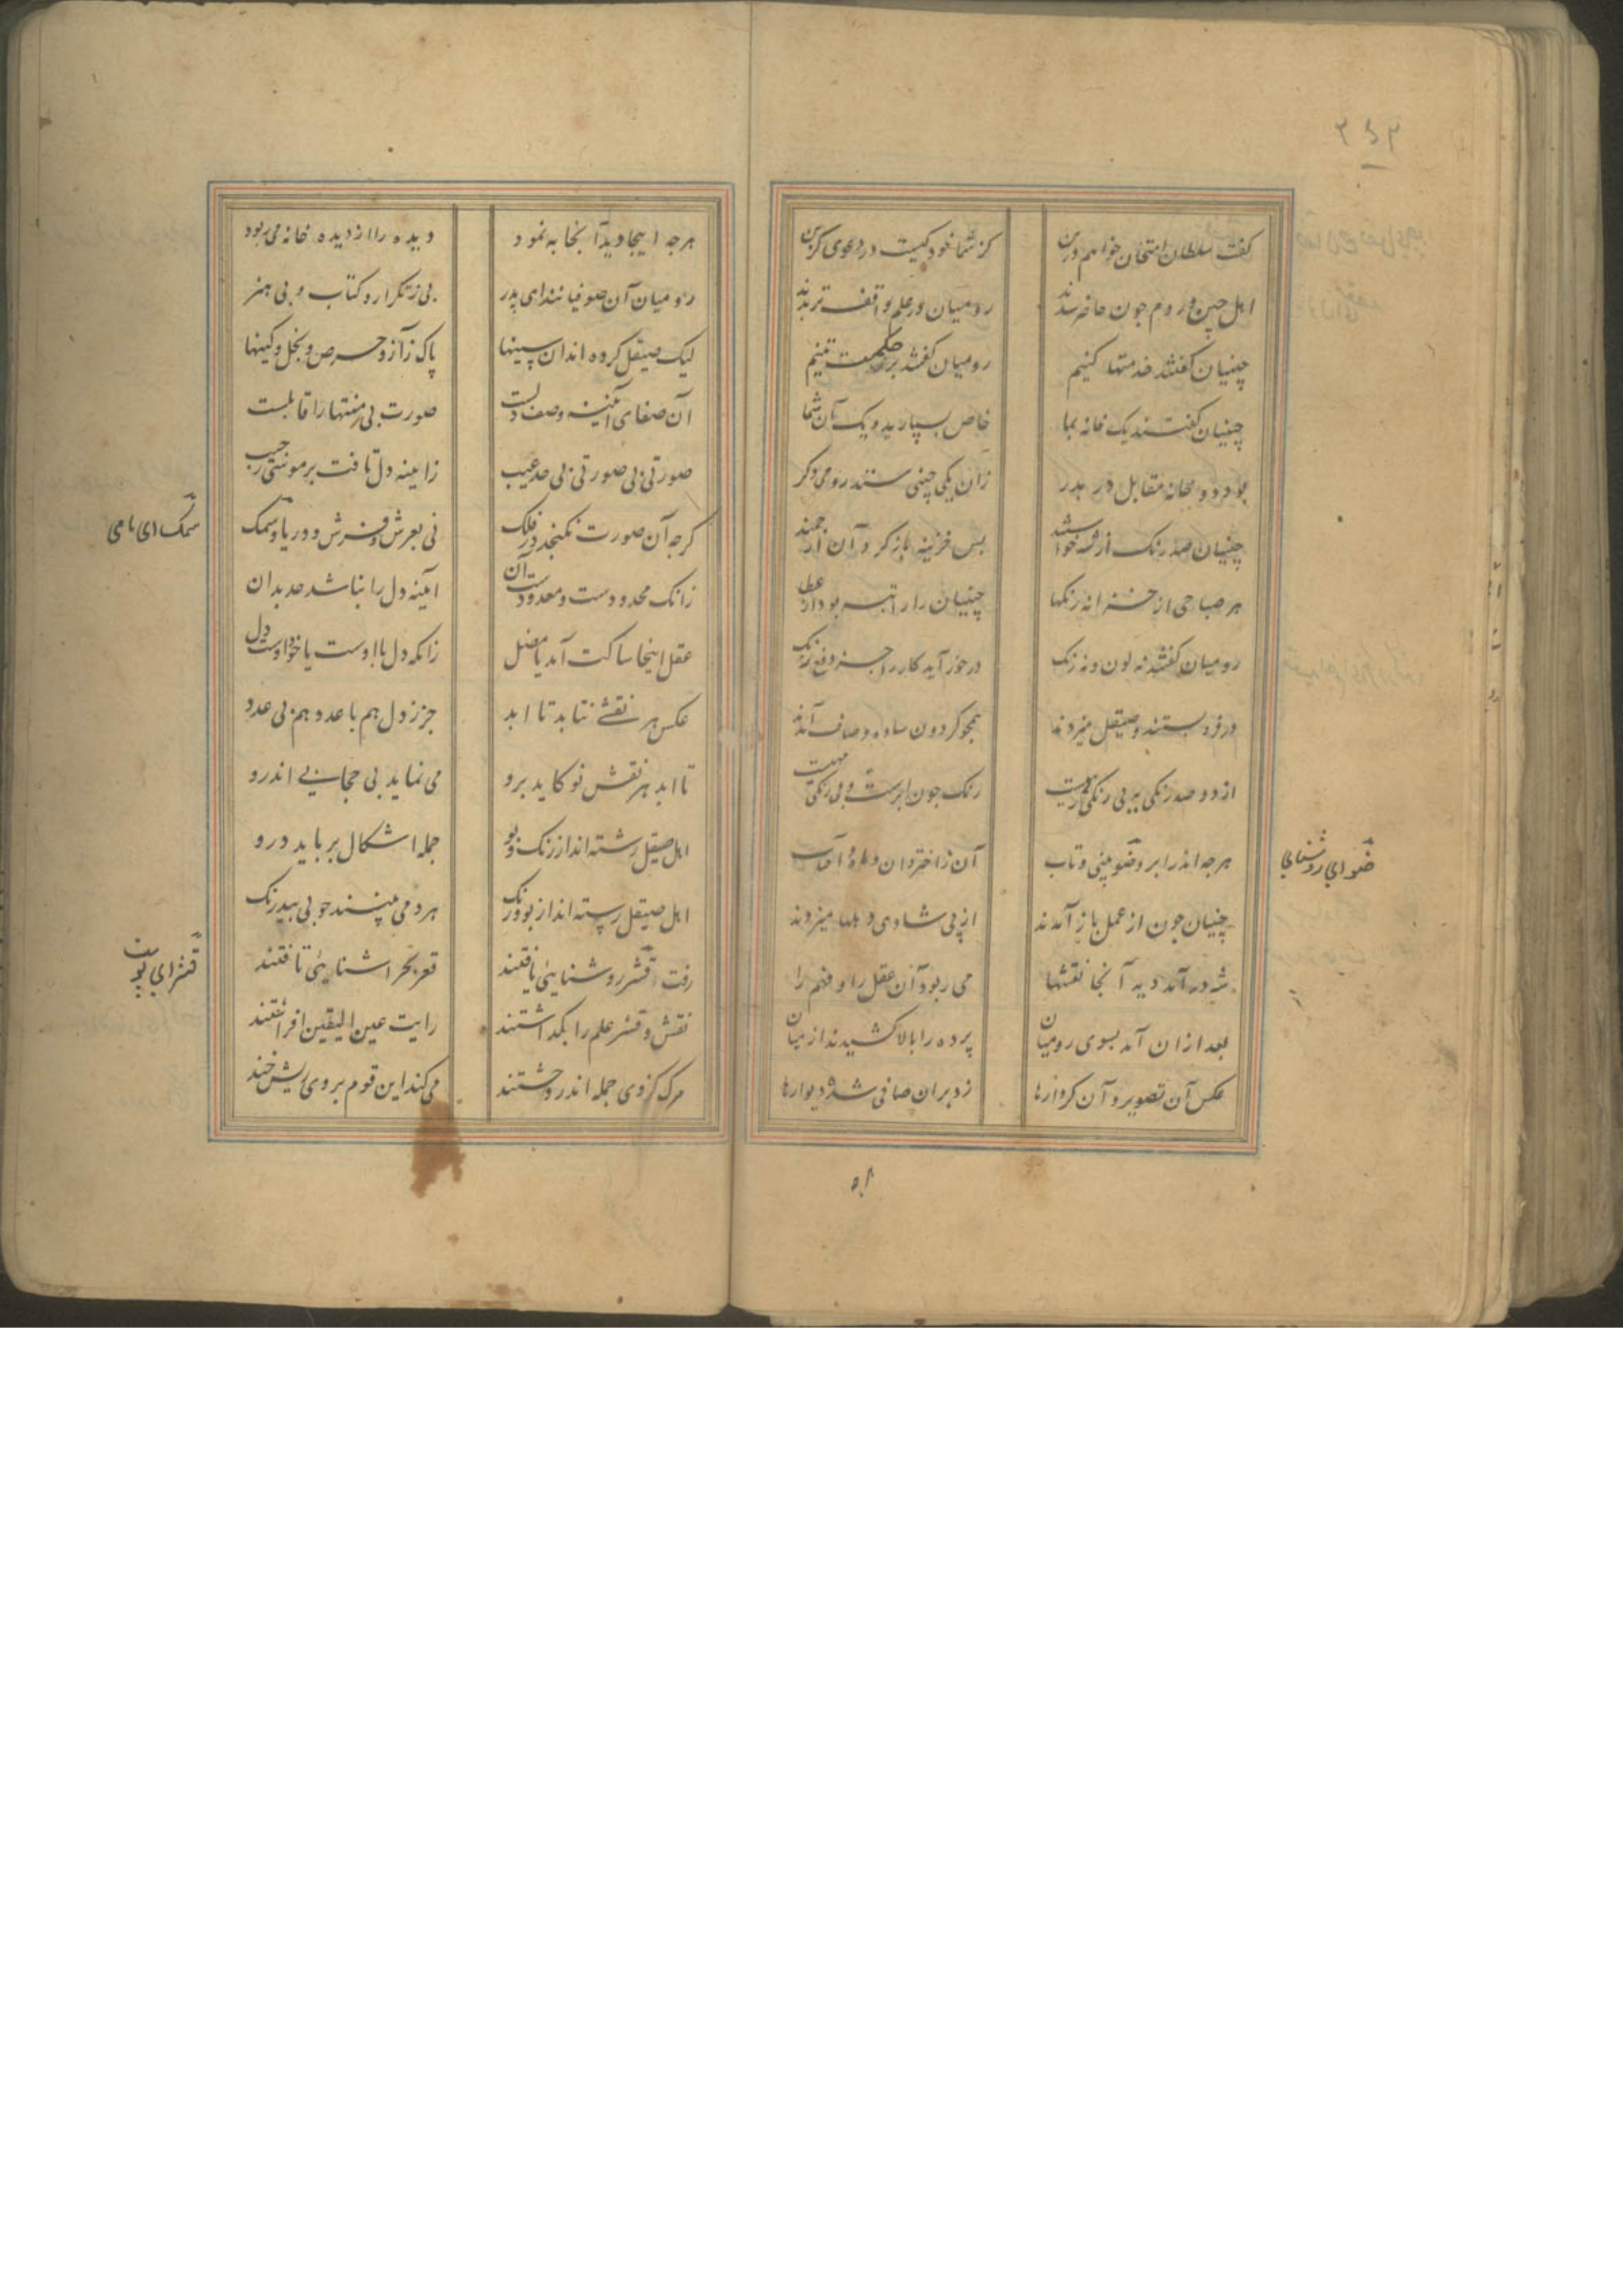 ۲۵۳
گفت سلطان امتحان خواهم درین کز شما خود کیست در دعوی گزین
اهل چین و روم چون حاضر شدند رومیان در علم واقف تر بدند
چینیان گفتند خدمتها کنیم رومیان گفتند بر حکمت تنیم
چینیان گفتند یک خانه بما خاص بسپارید و یک آن شما
بود دو خانه مقابل در بدر زان یکی چینی ستند رومی دکر
چینیان صد رنک از شه خواستند بس خزینه باز کرد آن ارجمند
هر صباحی از خزانه رنکها چینیان را راتبه بود از عطا
رومیان گفتند نه لون و نه رنک درخور آید کار را جز دفع زنک
در فرو بستند و صیقل میزدند همچو کردون ساده و صاف آمدند
از دو صد رنکی به بی رنکی رهیست رنک چون ابرست و بی رنکی مهیست
هرجه اندر ابر و ضو بینی و تاب آن ز اختر دان و ماه و آفتاب
ضو ای روشنایی
چینیان جون از عمل باز آمدند از پی شادی دهلها میزدند
شه در آمد دید آنجا نقشها می ربود آن عقل را و فهم را
بعد ازان آمد بسوی رومیان پرده را بالا کشیدند از میان
عکس آن تصویر و آن کردارها زد بران صافی شده دیوارها
هرجه اینجا دید آنجا به نمود دیده را از دیده خانه می ربود
رومیان آن صوفیانند ای پدر بی ز تکرار و کتاب و بی هنر
لیک صیقل کرده اند ان سینها پاک ز آز و حرص و بخل و کینها
آن صفای آینه وصف دلست صورت بی منتها را قابلست
صورتی بی صورتی بی حد عیب زاینه دل تافت بر موسی ز جیب
کرجه آن صورت نکنجد در فلک نی بعرش و فرش و دریا و سمک
سمک ای ماهی
زانک محدودست و معدودست آن آینه دل را نباشد حد بدان
عقل اینجا ساکت آمد یا مضل زانکه دل با اوست یا خود اوست دل
عکس هر نقشی نتابد تا ابد جز ز دل هم با عدد هم بی عدد
تا ابد هر نقش نو کاید برو می نماید بی حجابی اندرو
اهل صیقل رسته اند از رنک و بو جمله اشکال برباید درو
اهل صیقل رسته اند از بو و رنک هر دمی بینند خوبی بی درنک
رفت قشر روشنایی یافتند قعر بحر اشنایی تافتند
قشر ای پوست
نقش و قشر علم را بکداشتند رایت عین الیقین افراشتند
مرک کزوی جمله اندر وحشتند می کند این قوم بر وی ریش خند